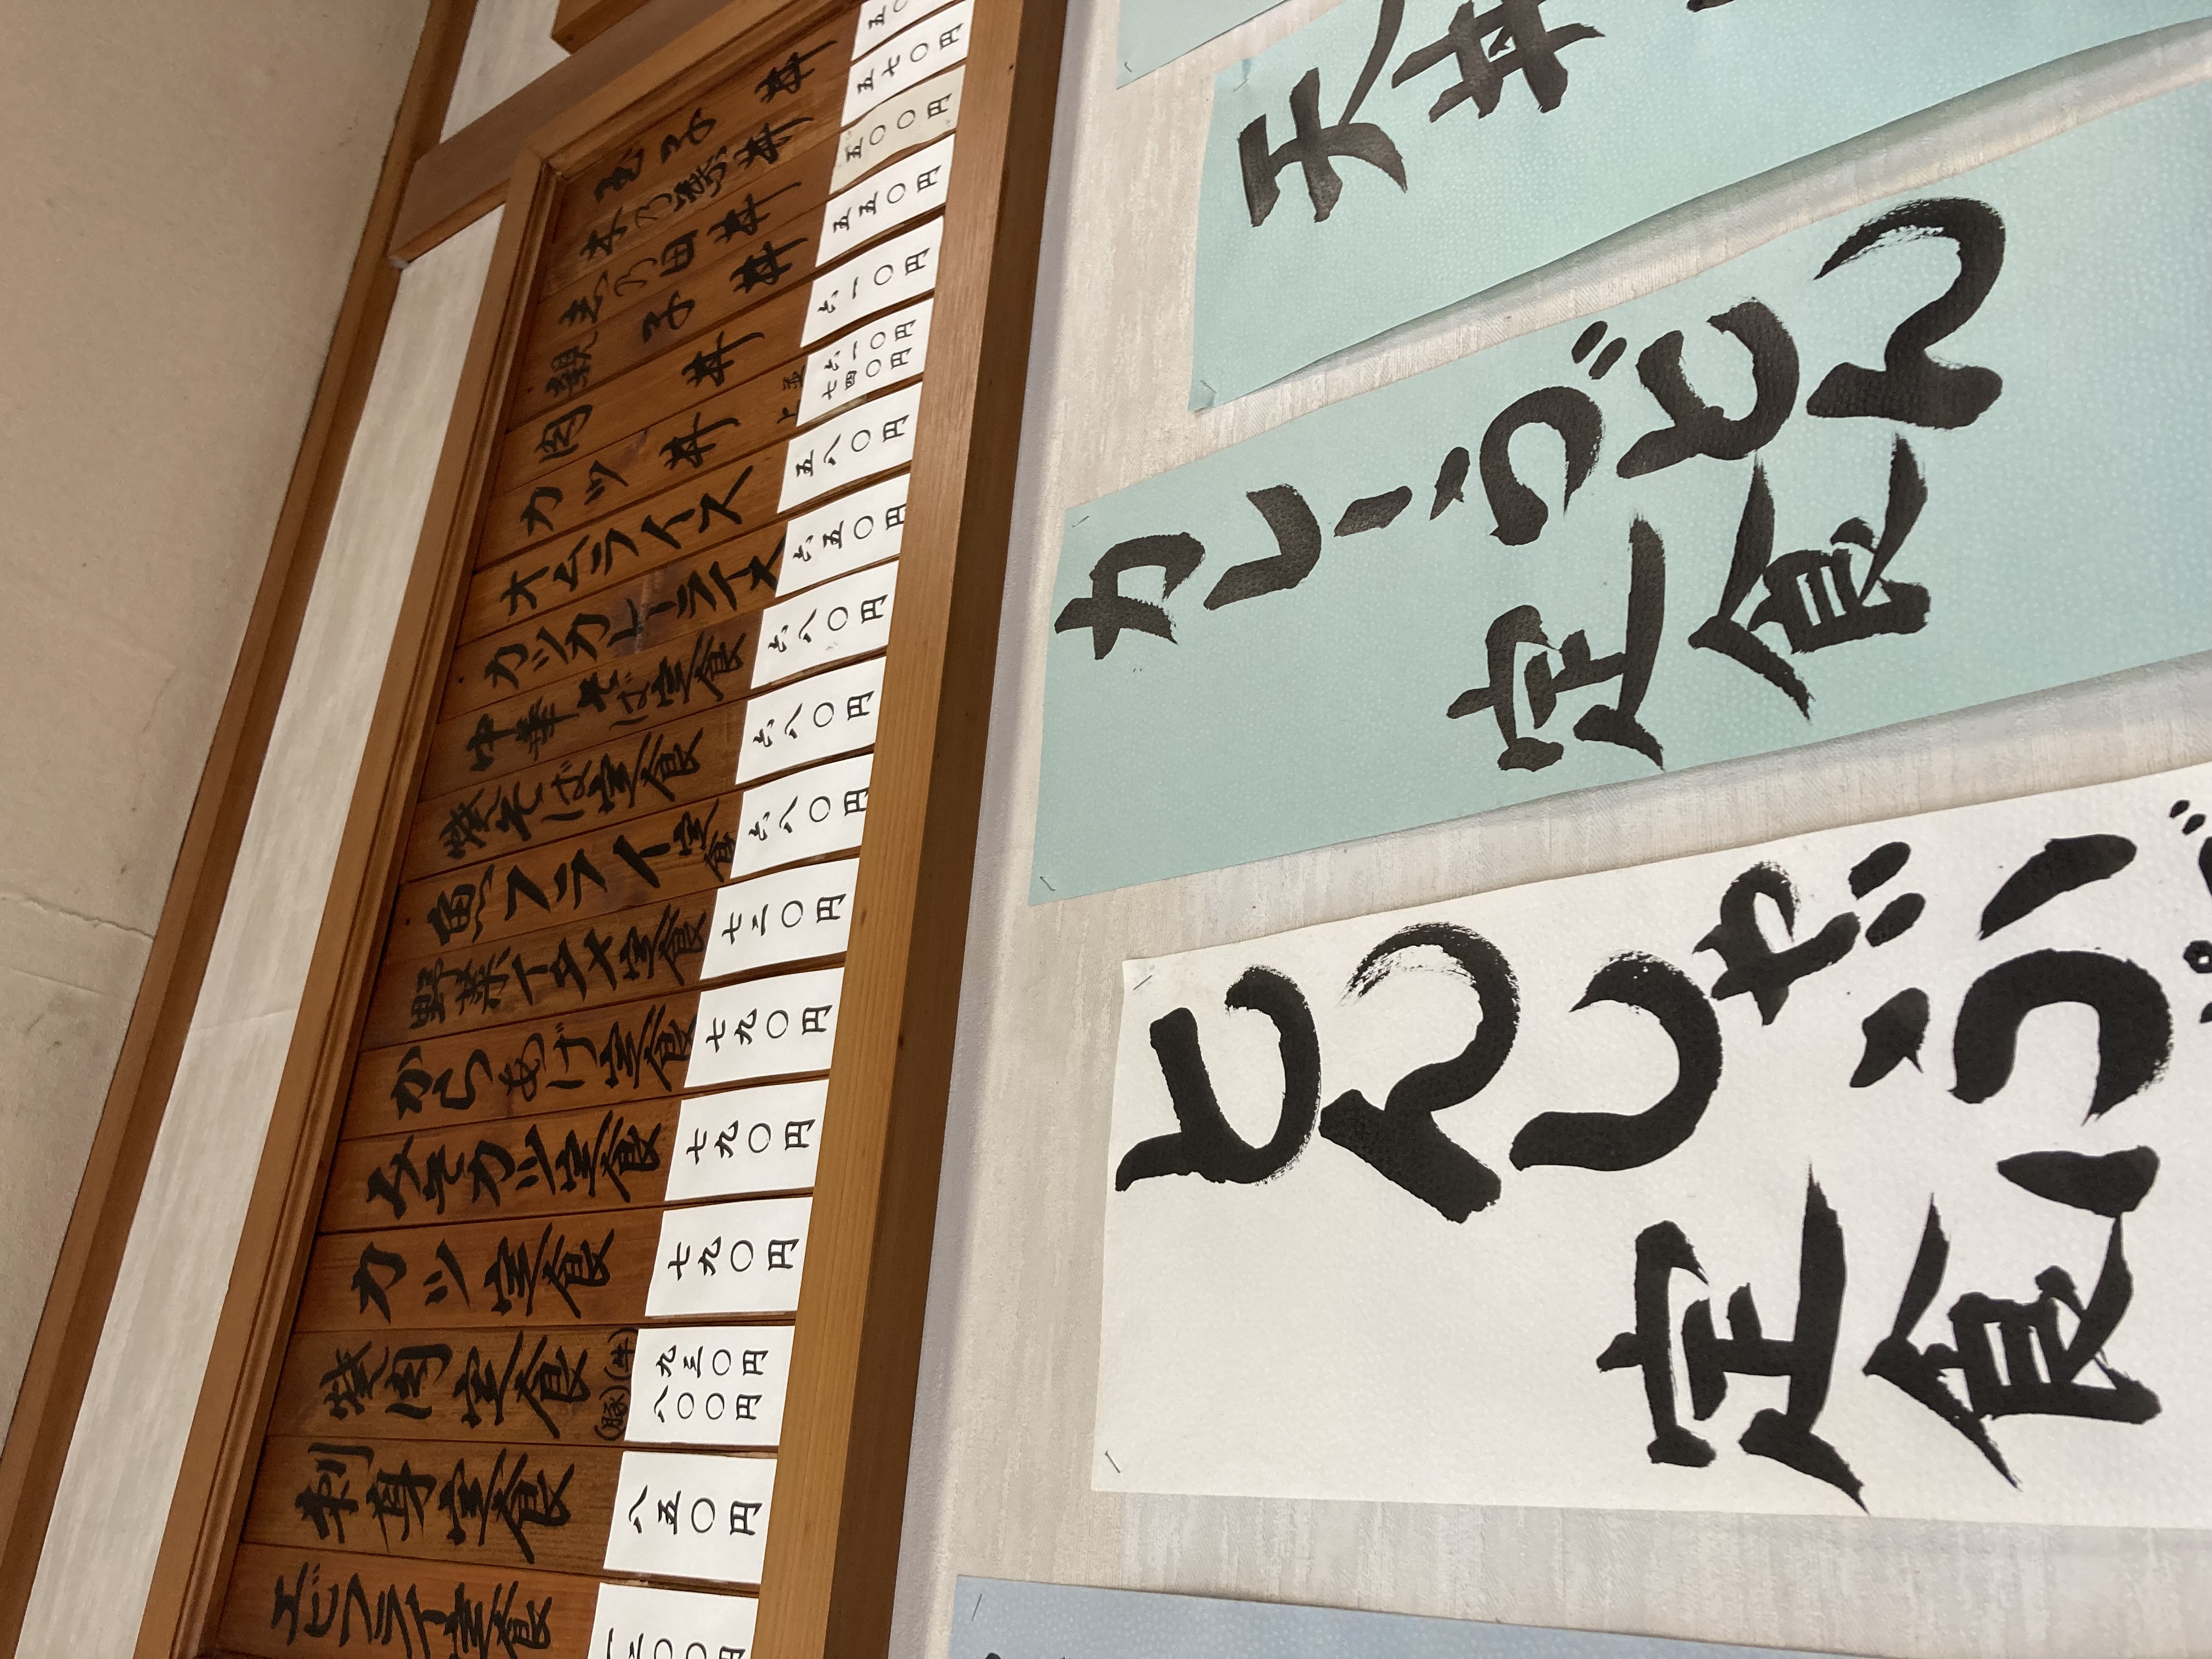 玉子丼
木乃葉丼 五七〇円
志乃田丼 五〇〇円
親子丼 五五〇円
肉丼 六一〇円
カツ丼 並 六一〇円
上 七四〇円
オムライス 五八〇円
カツカレーライス 六五〇円
中華そば定食 六八〇円
焼そば定食 六八〇円
魚フライ定食 六八〇円
野菜イタメ定食 七二〇円
からあげ定食 七九〇円
みそカツ定食 七九〇円
カツ定食 七九〇円
焼肉定食 (牛) 九三〇円
(豚) 八〇〇円
刺身定食 八五〇円
エビフライ定食
天丼
カレーうどん
定食
とんしゃぶ
定食